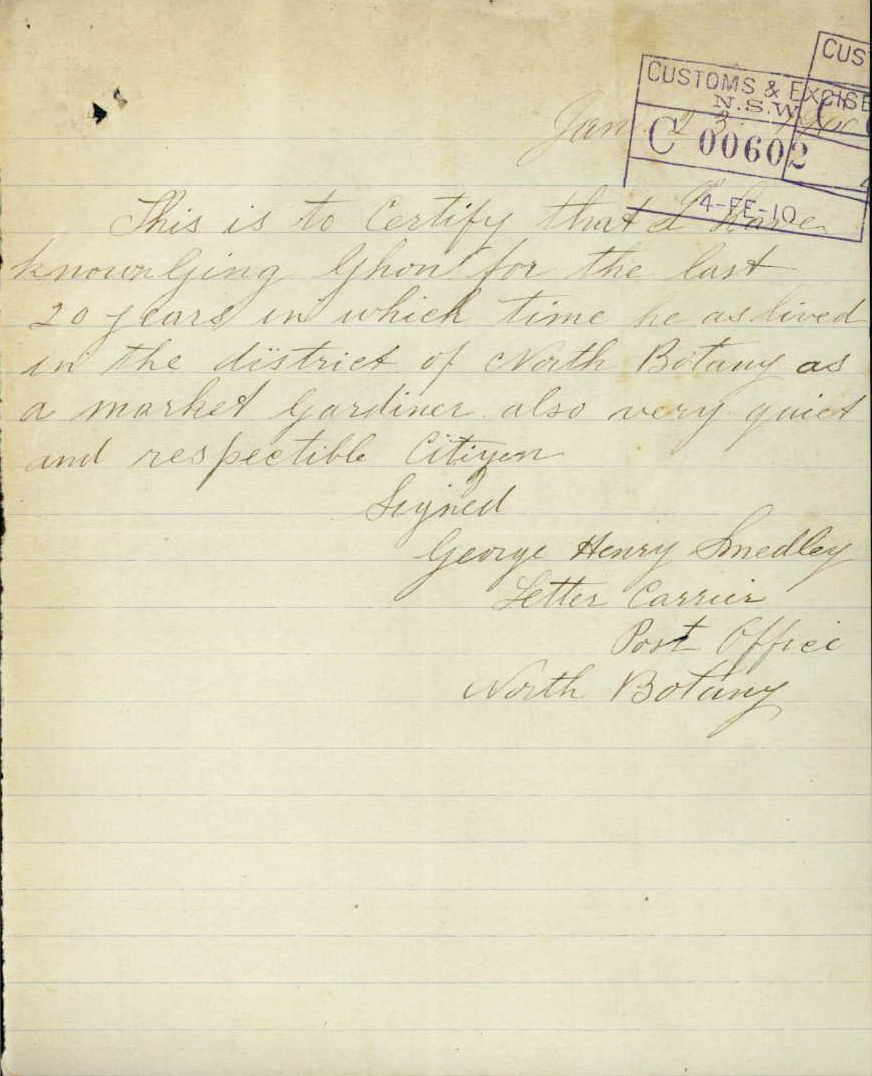 CUSTOMS & EXCISE
N.S.W.
C 00602
4-FE-10
CUS
Jan. 23.
This is to Certify that I have
known Ging Ghon for the last
20 years in which time he as lived
in the district of North Botany as
a market Gardiner also very quiet
and respectible Citizen
Signed
George Henry Smedley
Letter Carrier
Post Office
North Botany